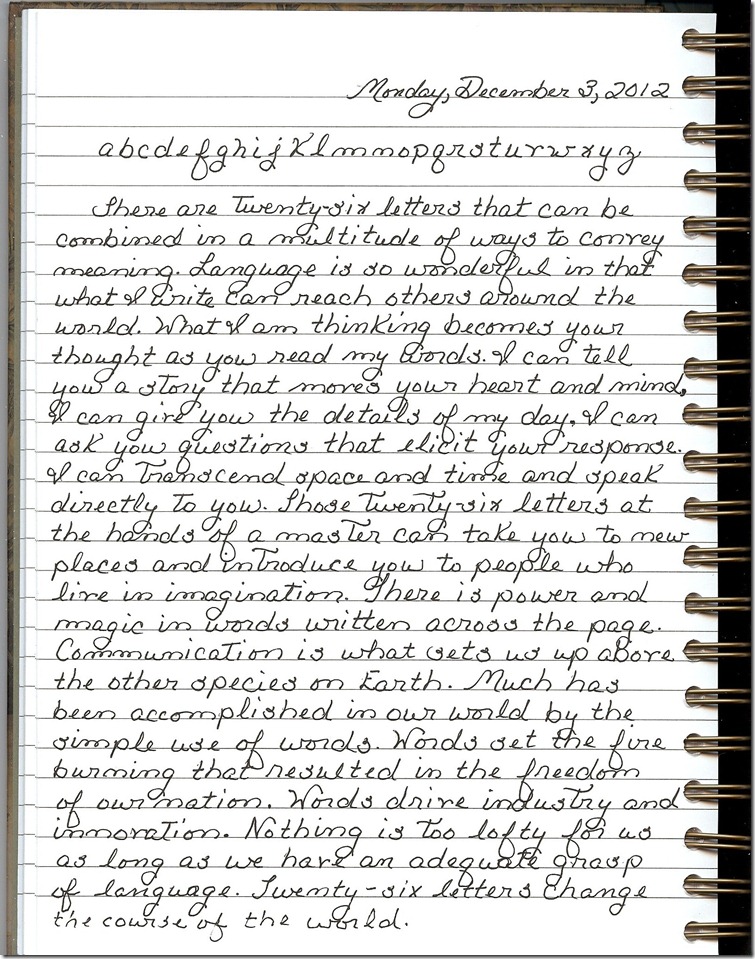 Monday, December 3, 2012
a b c d e f g h i j K l m n o p q r s t u v w x y z
There are Twenty-six letters that can be
combined in a multitude of ways to convey
meaning. Language is so wonderful in that
what I write can reach others around the
world. What I am thinking becomes your
thought as you read my words. I can tell
you a story that moves your heart and mind,
I can give you the details of my day, I can
ask you questions that elicit your response.
I can Transcend space and time and speak
directly To you. Those Twenty-six letters at
the hands of a master can take you to new
places and introduce you to people who
live in imagination. There is power and
magic in words written across the page.
Communication is what sets us up above
the other species on Earth. Much has
been accomplished in our world by the
simple use of words. Words set the fire
burning that resulted in the freedom
of our nation. Words drive industry and
innovation. Nothing is Too lofty for us
as long as we have an adequate grasp
of language. Twenty-six letters change
the course of the world.